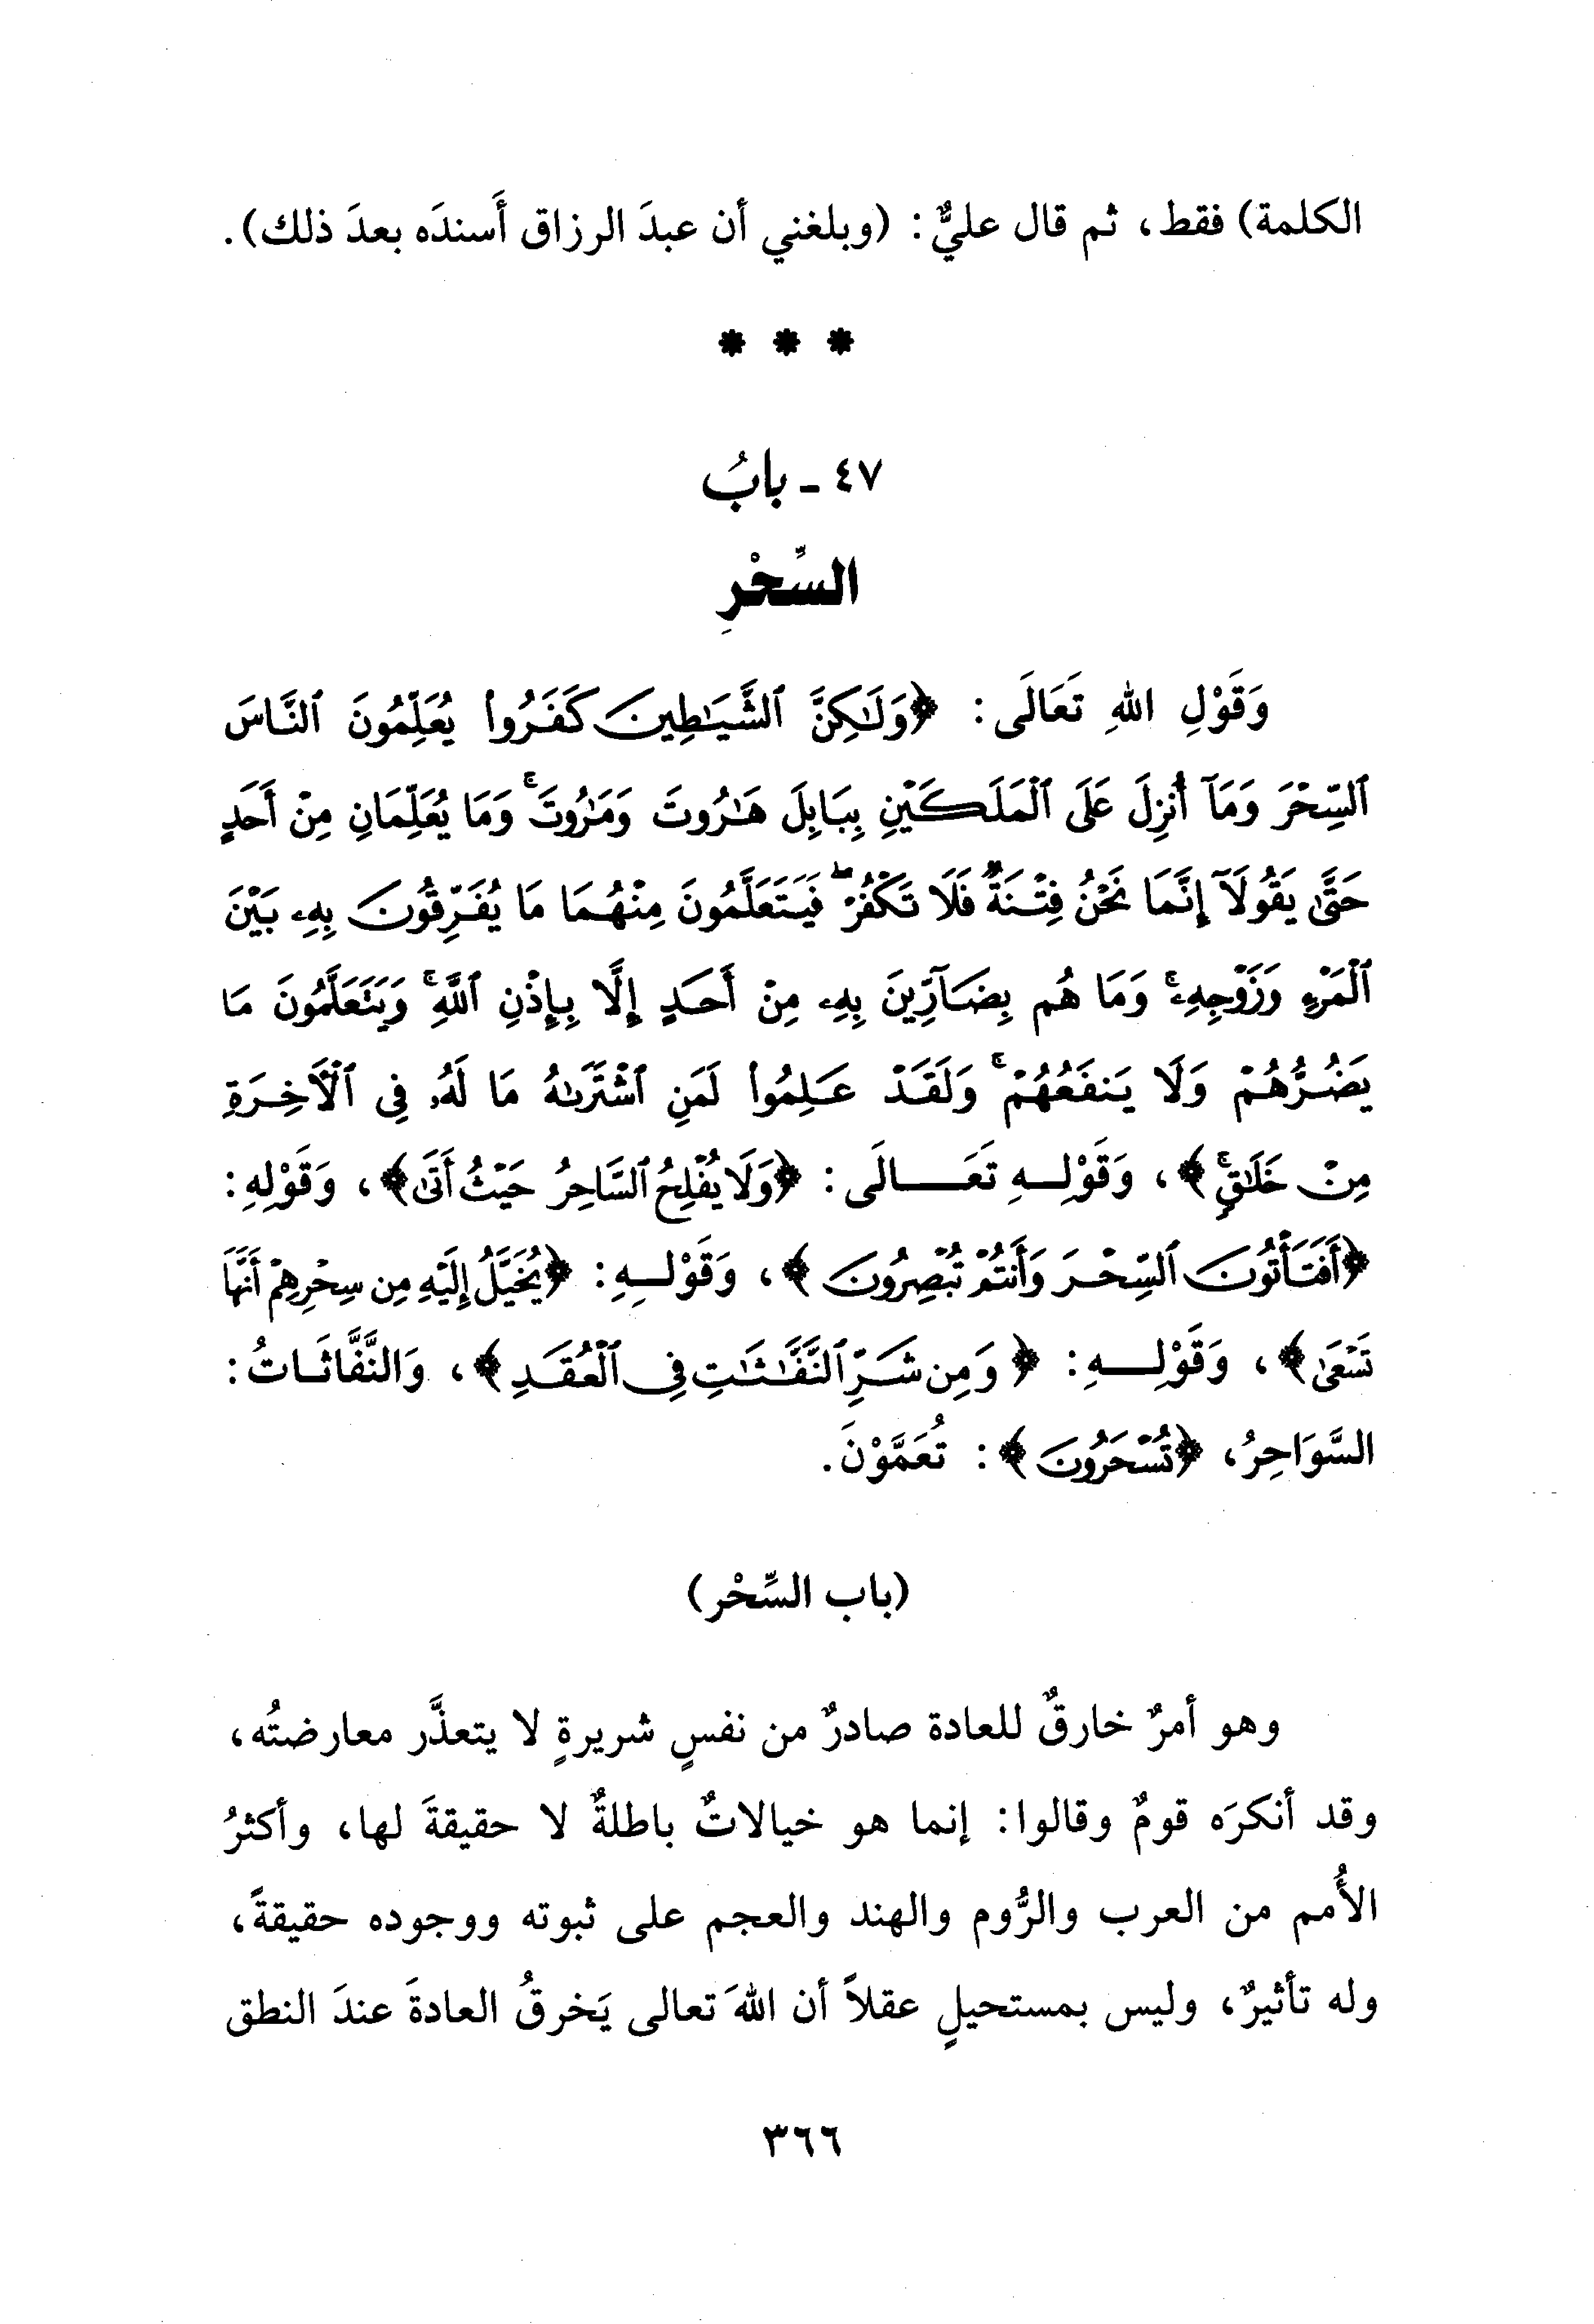 الكلمة) فقط، ثم قال عليٌّ: (وبلغني أن عبدَ الرزاق أَسندَه بعدَ ذلك).
* * *
٤٧ - بابُ
السِّحْرِ
وَقَوْلِ اللهِ تَعَالَى: ﴿وَلَٰكِنَّ ٱلشَّيَٰطِينَ كَفَرُوا۟ يُعَلِّمُونَ ٱلنَّاسَ
ٱلسِّحْرَ وَمَآ أُنزِلَ عَلَى ٱلْمَلَكَيْنِ بِبَابِلَ هَٰرُوتَ وَمَٰرُوتَ ۚ وَمَا يُعَلِّمَانِ مِنْ أَحَدٍ
حَتَّىٰ يَقُولَآ إِنَّمَا نَحْنُ فِتْنَةٌ فَلَا تَكْفُرْ ۖ فَيَتَعَلَّمُونَ مِنْهُمَا مَا يُفَرِّقُونَ بِهِۦ بَيْنَ
ٱلْمَرْءِ وَزَوْجِهِۦ ۚ وَمَا هُم بِضَآرِّينَ بِهِۦ مِنْ أَحَدٍ إِلَّا بِإِذْنِ ٱللَّهِ ۚ وَيَتَعَلَّمُونَ مَا
يَضُرُّهُمْ وَلَا يَنفَعُهُمْ ۚ وَلَقَدْ عَلِمُوا۟ لَمَنِ ٱشْتَرَىٰهُ مَا لَهُۥ فِى ٱلْءَاخِرَةِ
مِنْ خَلَٰقٍ ۚ﴾، وَقَوْلِهِ تَعَالَى: ﴿وَلَا يُفْلِحُ ٱلسَّاحِرُ حَيْثُ أَتَىٰ﴾، وَقَوْلِهِ:
﴿أَفَتَأْتُونَ ٱلسِّحْرَ وَأَنتُمْ تُبْصِرُونَ﴾، وَقَوْلِهِ: ﴿يُخَيَّلُ إِلَيْهِ مِن سِحْرِهِمْ أَنَّهَا
تَسْعَىٰ﴾، وَقَوْلِهِ: ﴿وَمِن شَرِّ ٱلنَّفَّٰثَٰتِ فِى ٱلْعُقَدِ﴾، وَالنَّفَّاثَاتُ:
السَّوَاحِرُ، ﴿تُسْحَرُونَ﴾: تُعَمَّوْنَ.
(باب السِّحْر)
وهو أمرٌ خارقٌ للعادة صادرٌ من نفسٍ شريرةٍ لا يتعذَّر معارضتُه،
وقد أنكرَه قومٌ وقالوا: إنما هو خيالاتٌ باطلةٌ لا حقيقةَ لها، وأكثرُ
الأُمم من العرب والرُّوم والهند والعجم على ثبوته ووجوده حقيقةً،
وله تأثيرٌ، وليس بمستحيلٍ عقلاً أن اللهَ تعالى يَخرقُ العادةَ عندَ النطق
٣٦٦